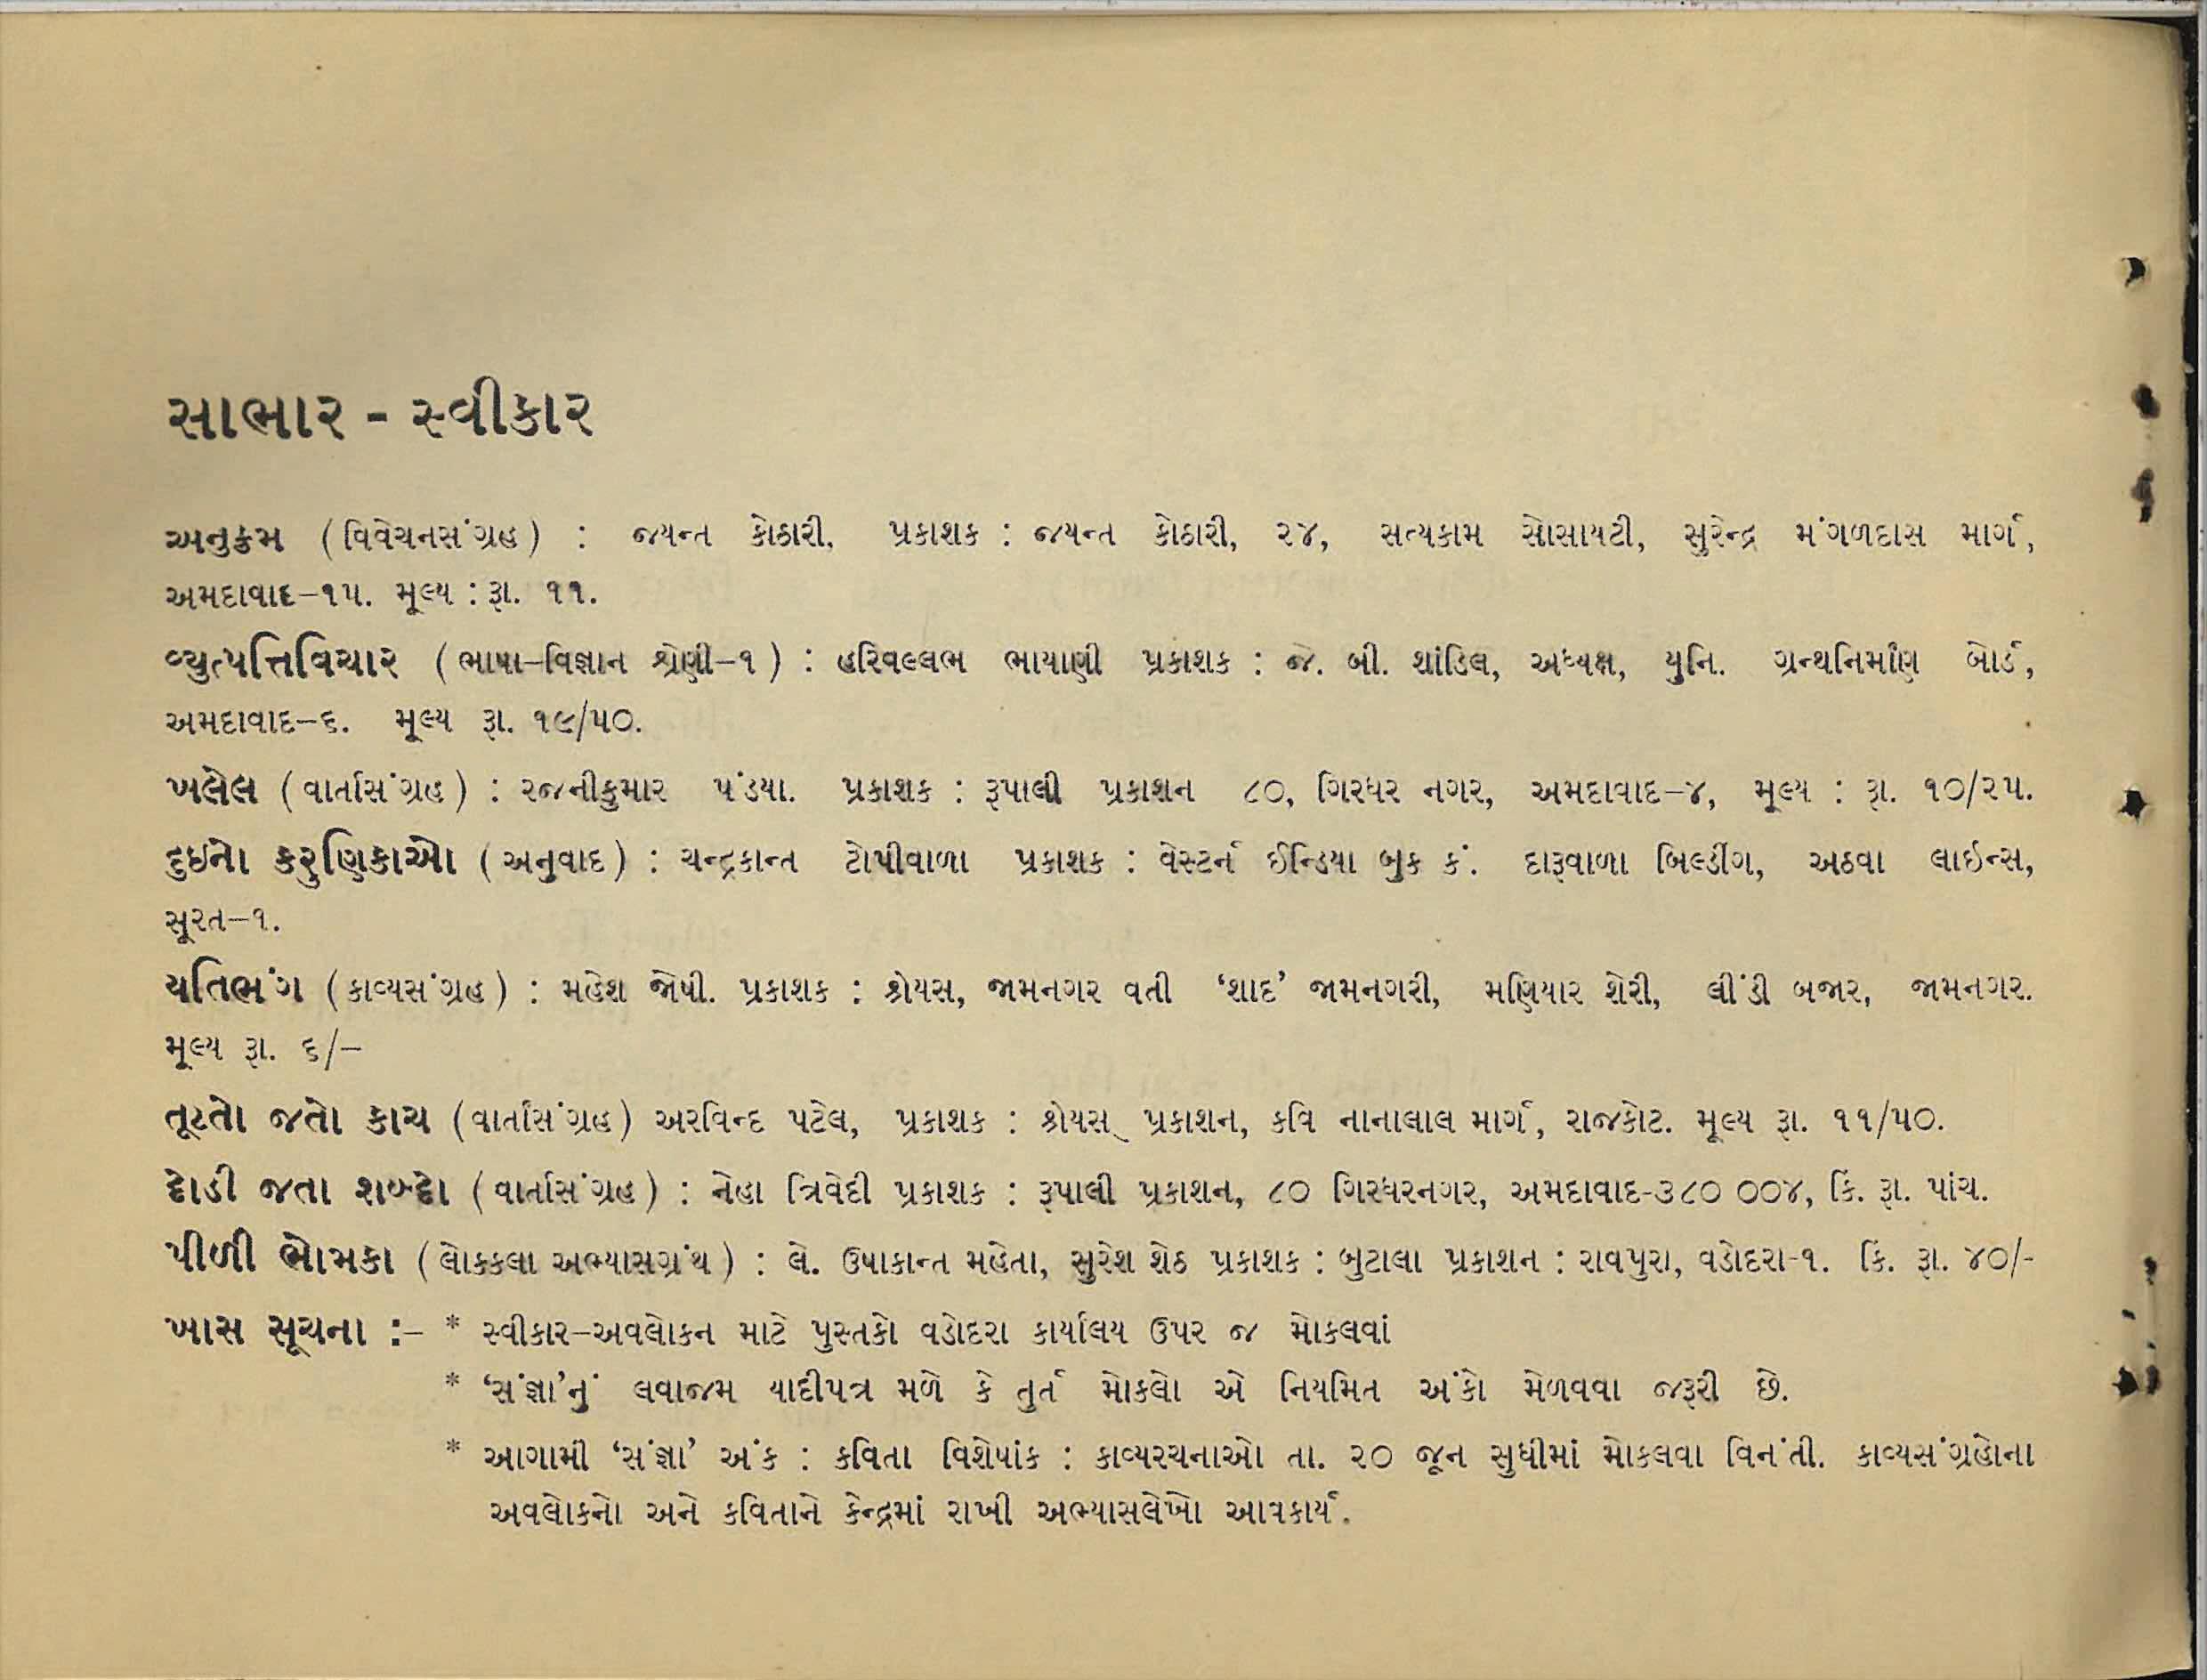 સાભાર - સ્વીકાર
અનુક્રમ (વિવેચનસંગ્રહ) : જયન્ત કોઠારી, પ્રકાશક : જયન્ત કોઠારી, ૨૪, સત્યકામ સોસાયટી, સુરેન્દ્ર મંગળદાસ માર્ગ,
અમદાવાદ–૧૫. મૂલ્ય : રૂા. ૧૧.
વ્યુત્પત્તિવિચાર (ભાષા–વિજ્ઞાન શ્રેણી–૧) : હરિવલ્લભ ભાયાણી પ્રકાશક : જે. બી. શાંડિલ, અધ્યક્ષ, યુનિ. ગ્રન્થનિર્માણ બોર્ડ,
અમદાવાદ–૬. મૂલ્ય રૂા. ૧૯/૫૦.
ખલેલ (વાર્તાસંગ્રહ) : રજનીકુમાર પંડયા. પ્રકાશક : રૂપાલી પ્રકાશન ૮૦, ગિરધર નગર, અમદાવાદ–૪, મૂલ્ય : રૂા. ૧૦/૨૫.
દુઇનો કરુણિકાઓ (અનુવાદ) : ચન્દ્રકાન્ત ટોપીવાળા પ્રકાશક : વેસ્ટર્ન ઈન્ડિયા બુક કં. દારૂવાળા બિલ્ડીંગ, અઠવા લાઇન્સ,
સૂરત–૧.
યતિભંગ (કાવ્યસંગ્રહ) : મહેશ જોષી. પ્રકાશક : શ્રેયસ, જામનગર વતી ‘શાદ’ જામનગરી, મણિયાર શેરી, લીંડી બજાર, જામનગર.
મૂલ્ય રૂા. ૬/–
તૂટતો જતો કાચ (વાર્તાસંગ્રહ) અરવિન્દ પટેલ, પ્રકાશક : શ્રેયસ્ પ્રકાશન, કવિ નાનાલાલ માર્ગ, રાજકોટ. મૂલ્ય રૂા. ૧૧/૫૦.
દોડી જતા શબ્દો (વાર્તાસંગ્રહ) : નેહા ત્રિવેદી પ્રકાશક : રૂપાલી પ્રકાશન, ૮૦ ગિરધરનગર, અમદાવાદ-૩૮૦ ૦૦૪, કિં. રૂા. પાંચ.
પીળી ભોમકા (લોકકલા અભ્યાસગ્રંથ) : લે. ઉષાકાન્ત મહેતા, સુરેશ શેઠ પ્રકાશક : બુટાલા પ્રકાશન : રાવપુરા, વડોદરા-૧. કિં. રૂા. ૪૦/-
ખાસ સૂચના :– * સ્વીકાર–અવલોકન માટે પુસ્તકો વડોદરા કાર્યાલય ઉપર જ મોકલવાં
* ‘સંજ્ઞા’નું લવાજમ યાદીપત્ર મળે કે તુર્ત મોકલો એ નિયમિત અંકો મેળવવા જરૂરી છે.
* આગામી ‘સંજ્ઞા’ અંક : કવિતા વિશેષાંક : કાવ્યરચનાઓ તા. ૨૦ જૂન સુધીમાં મોકલવા વિનંતી. કાવ્યસંગ્રહોના
અવલોકનો અને કવિતાને કેન્દ્રમાં રાખી અભ્યાસલેખો આવકાર્ય.